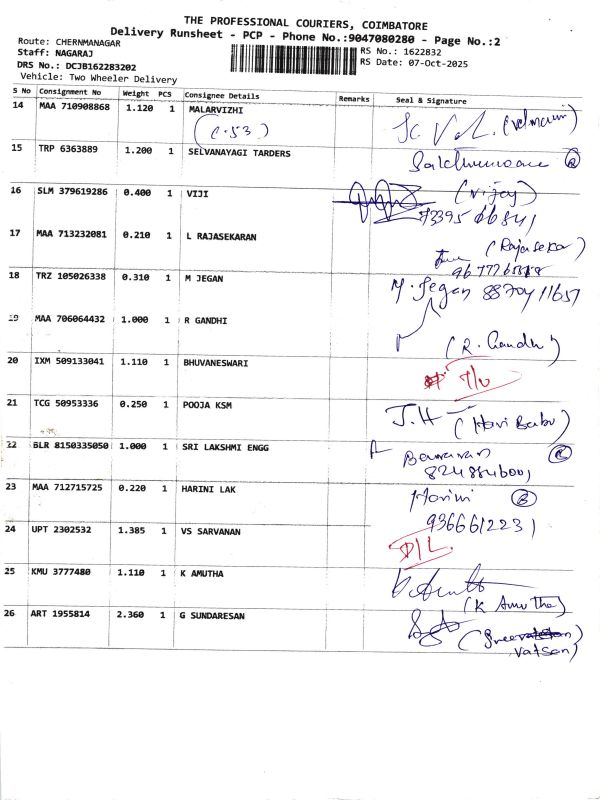 THE PROFESSIONAL COURIERS, COIMBATORE
Delivery Runsheet - PCP - Phone No.:9047080280 - Page No.:2
Route: CHERNMANAGAR
Staff: NAGARAJ
DRS No.: DCJB162283202
Vehicle: Two Wheeler Delivery
RS No.: 1622832
RS Date: 07-Oct-2025
S No Consignment No Weight PCS Consignee Details Remarks Seal & Signature
14 MAA 710908868 1.120 1 MALARVIZHI
(C.53)
15 TRP 6363889 1.200 1 SELVANAYAGI TARDERS
16 SLM 379619286 0.400 1 VIJI (Vijay)
17 MAA 713232081 0.210 1 L RAJASEKARAN (Rajasekar)
18 TRZ 105026338 0.310 1 M JEGAN M. Jegan 88704 11657
19 MAA 706064432 1.000 1 R GANDHI (R. Gandhi)
20 IXM 509133041 1.110 1 BHUVANESWARI
21 TCG 50953336 0.250 1 POOJA KSM J.H (Hari Babu)
22 BLR 8150335050 1.000 1 SRI LAKSHMI ENGG
8248846001
23 MAA 712715725 0.220 1 HARINI LAK Harini
9366612231
24 UPT 2302532 1.385 1 VS SARVANAN D/L
25 KMU 3777480 1.110 1 K AMUTHA
(K Amutha)
26 ART 1955814 2.360 1 G SUNDARESAN
vatsan)